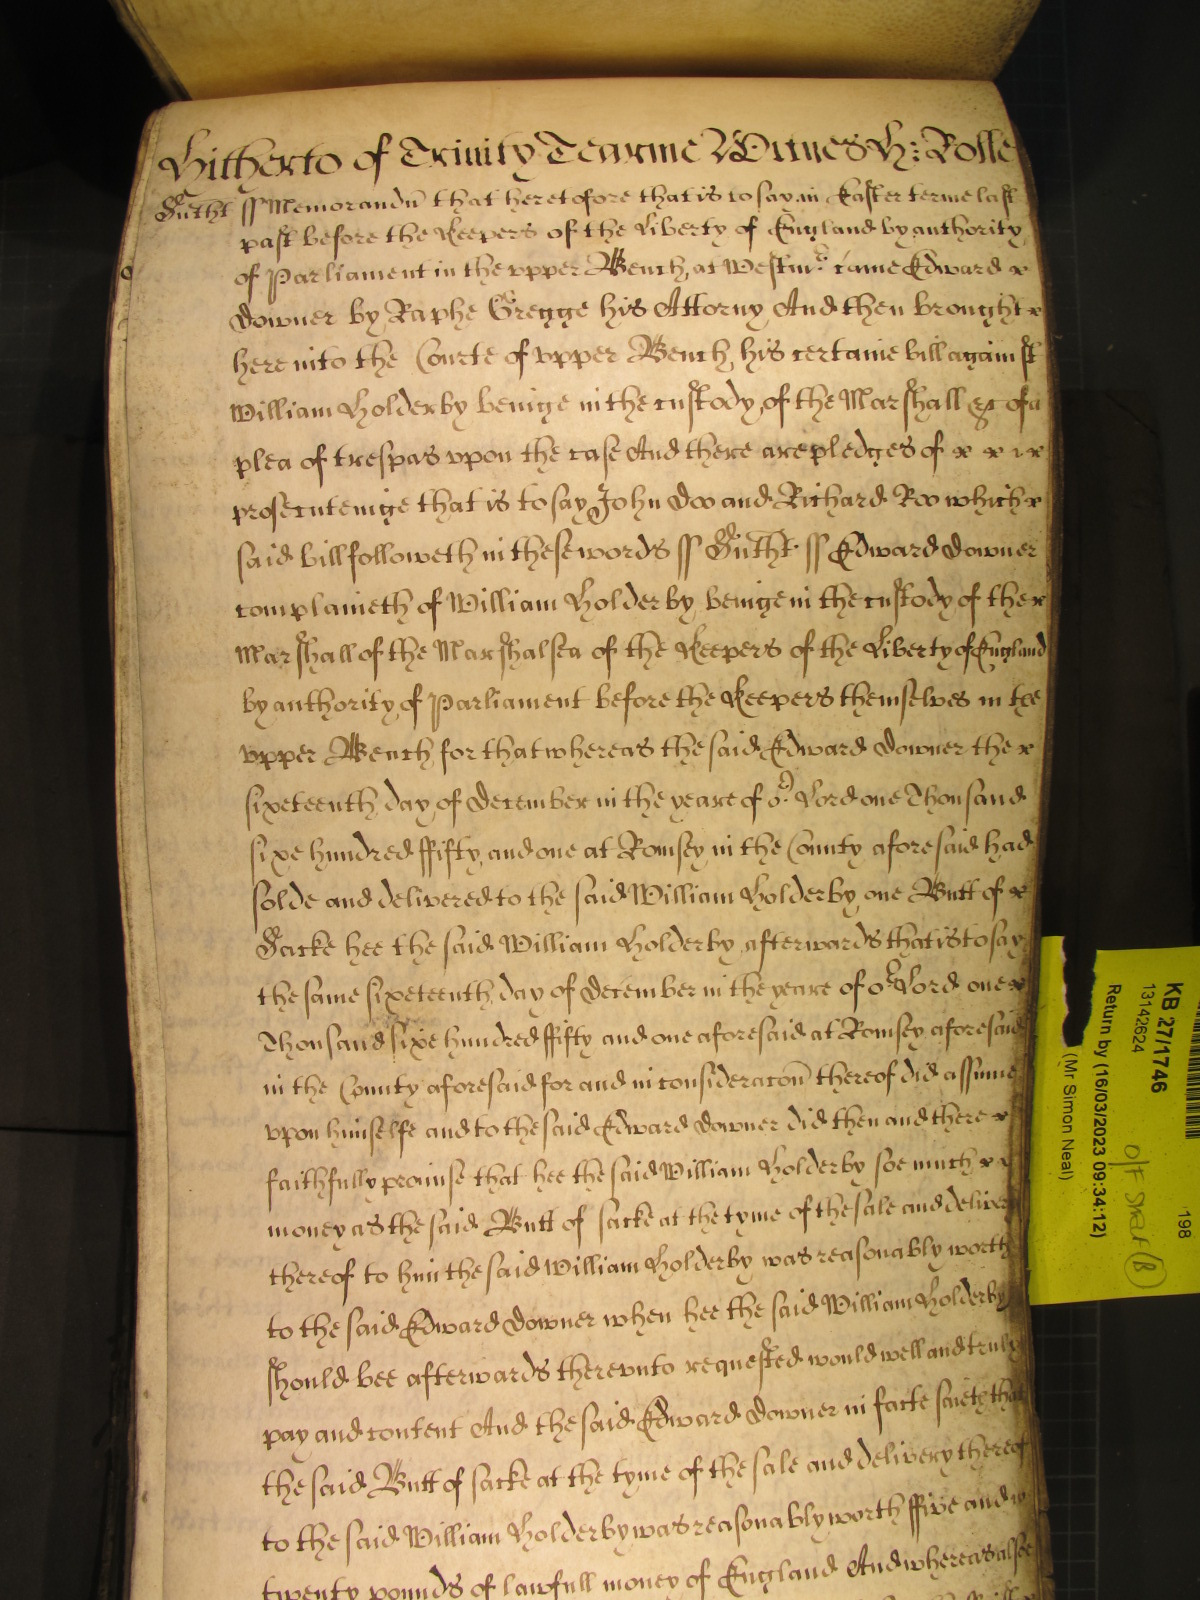 Hitherto of Trinity Tearme Witnes H: Rolle
Sutht ss Memorandū that heretofore that is to say in Easter terme last
past before the Keepers of the Liberty of England by authority
of Parliament in the upper Bench at Westmr: came Edward x
Downer by Raphe Gregge his Attorny And then brought x
here into the Courte of upper Bench his certaine bill against
William Holderby beinge in the custody of the Marshall &c of a
plea of trespas upon the case And there are pledges of x x x x
prosecuteinge that is to say John Doo and Richard Roo which x
said bill followeth in these words ss Sutht ss Edward Downer
complaineth of William Holderby beinge in the custody of the x
Marshall of the Marshalsea of the Keepers of the Liberty of England
by authority of Parliament before the Keepers themselves in the
upper Bench for that whereas the said Edward Downer the x
sixeteenth day of December in the yeare of or Lord one Thousand
sixe hundred ffifty and one at Romsey in the County aforesaid had
solde and delivered to the said William Holderby one Butt of x
Sacke hee the said William Holderby afterwards that is to say
the same sixeteenth day of December in the yeare of or Lord one x
Thousand sixe hundred ffifty and one aforesaid at Romsey aforesaid
in the County aforesaid for and in consideracoū thereof did assume
upon himselfe and to the said Edward Downer did then and there x
faithfully promise that hee the said William Holderby soe much x x
money as the said Butt of sacke at the tyme of the sale and delivery
thereof to him the said William Holderby was reasonably worth
to the said Edward Downer when hee the said William Holderby
should bee afterwards thereunto requested would well and truly
pay and content And the said Edward Downer in facte saieth that
the said Butt of sacke at the tyme of the sale and delivery thereof
to the said William Holderby was reasonably worth ffive and
twenty pounds of lawfull money of England And whereas alsoe
KB 27/1746
13142624
Return by (16/03/2023 09:34:12)
(Mr Simon Neal)
198